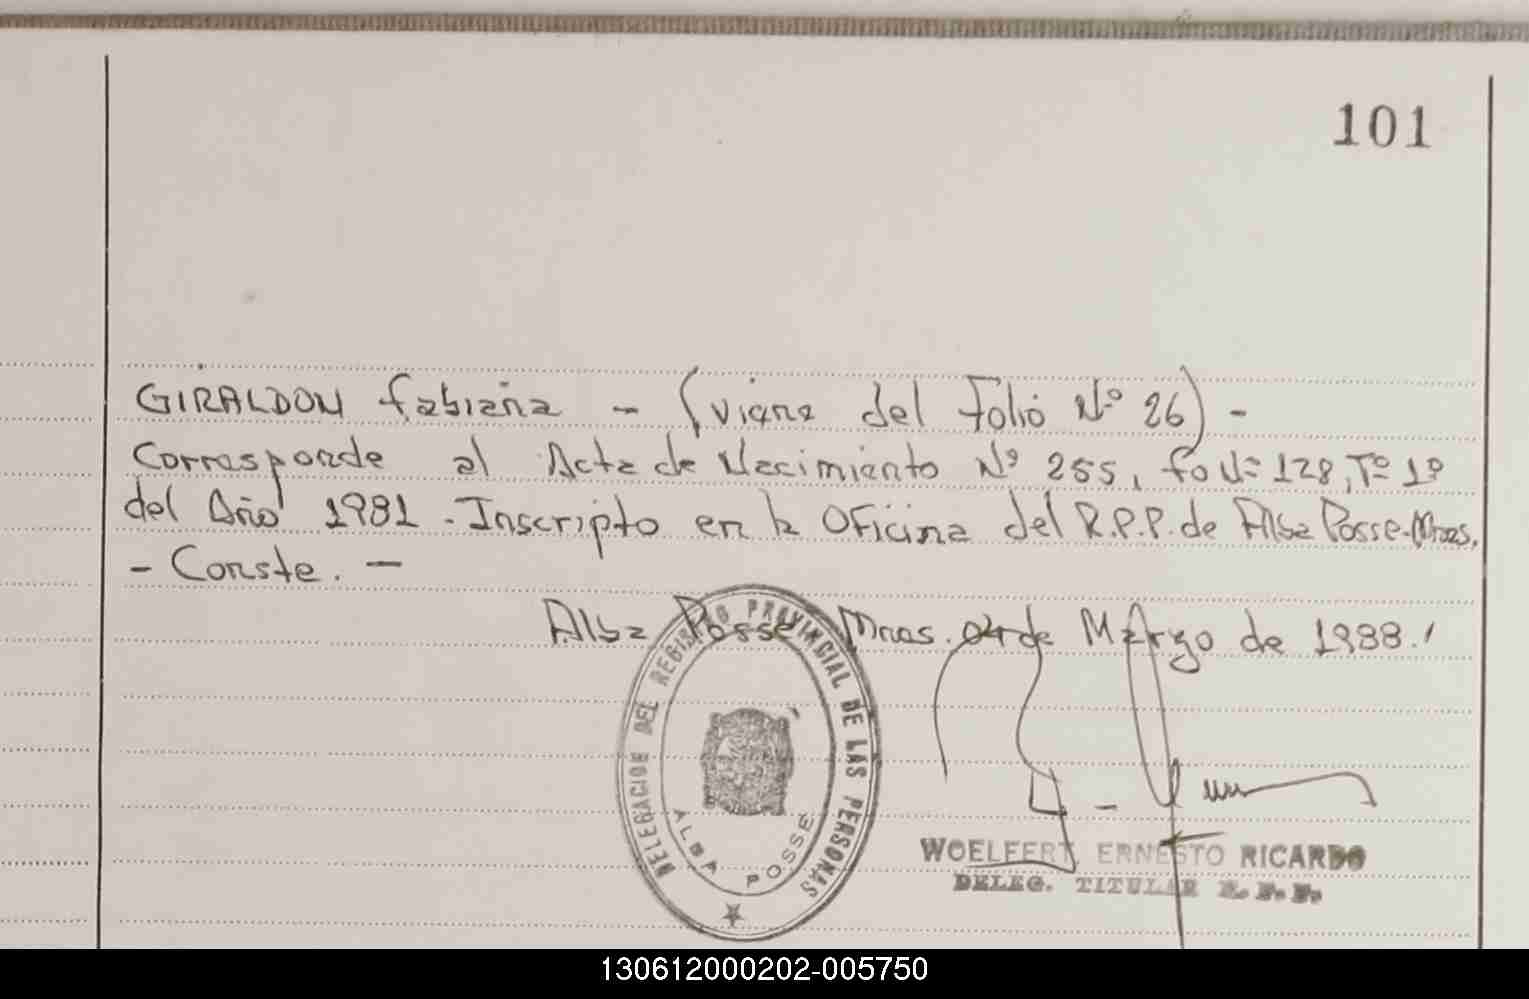 101
GIRALDON fabiana - (viene del Folio Nº 26) -
Corresponde al Acta de Nacimiento Nº 255, foNº 128, Tº 1º
del Año 1981 - Inscripto en la Oficina del R.P.P. de Alba Posse-Mnes.
- Conste. -
Alba Posse, Mnes. 04 de Marzo de 1988.
DELEGACION DEL REGISTRO PROVINCIAL DE LAS PERSONAS
ALBA POSSE
WOELFERT, ERNESTO RICARDO
DELEG. TITULAR R. P. P.
130612000202-005750